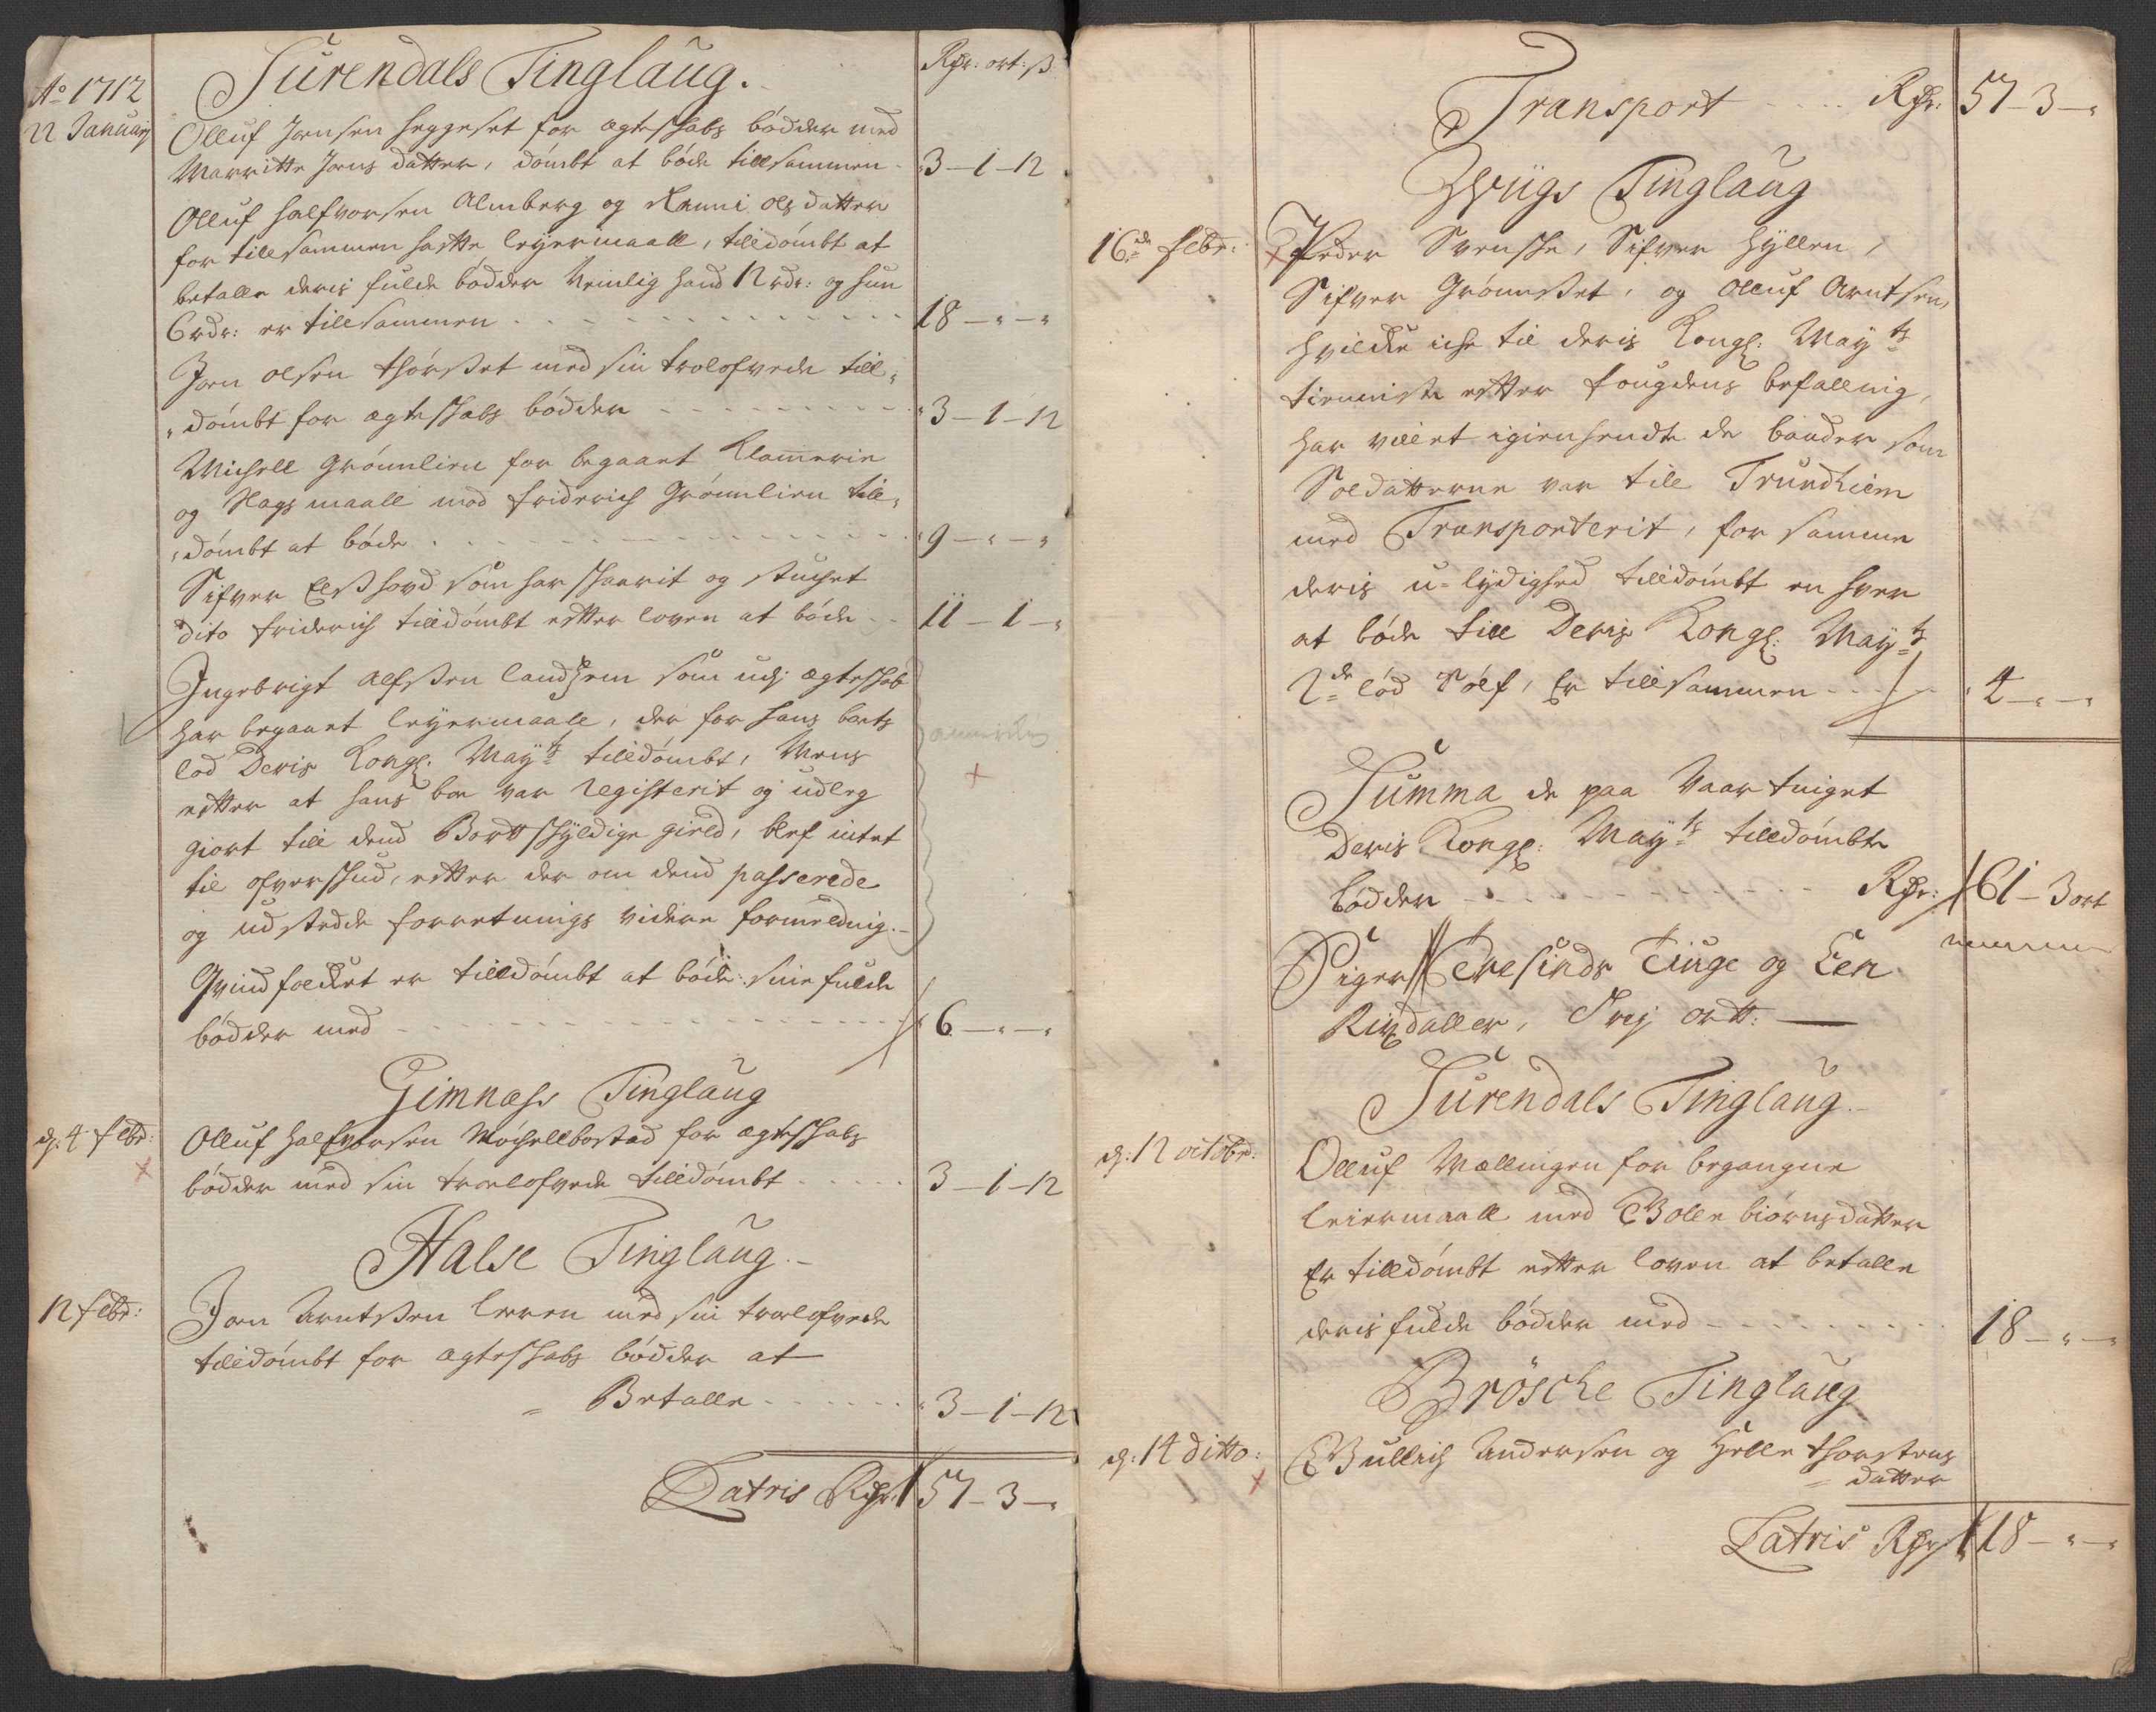 Surendals Tinglaug.
Rdr: ort: ß
Ao 1712
22 January
Olluf Jonsen Heggeset for ægteskabs bøder med
Marritte Jons datter, dømbt at bøde tillsammen 3-1-12
Olluf Halfvorsen Almberg og Ranni Ols datter
for tillsammen hafte leyermaall, tilldømbt at
betalle deris fulde bøder Nemlig hand 12 rdr: og hun
6 rdr: er tillsammen 18-"-"
Joen Olsen Thørset med sin trolofvede till¬
dømbt for ægteskabs bøder 3-1-12
Michell Grønnlien for begaaet Klammerie
og Slagsmaall med Friderich Grønnlien till¬
dømbt at bøde 9-"-"
Sifver Elshovd som har skaarit og stuchet
dito Friderich tilldømbt efter loven at bøde 11-1-"
Ingebrigt Alfsen Landsem som udj ægteskab
har begaaet leyermaall, der for hans boets
lod Deris Kongl: Mayts tilldømbt, Mens
efter at hans boe var Registerit og udleg
giort till dend Bortskyldige gield, blef intet
til ofverskud, efter der om dend passerede
og udstedde forretnings videre formeldnig.
Qvindfolchet er tilldømbt at bøde sine fulde
bøder med 6-"-"
Gimnæss Tinglaug
d: 4 Febr:
Olluf Halfvorsen Møchellbostad for ægteskabs
bøder med sin troelofvede tilldømbt 3-1-12
Halse Tinglaug.
12 Febr:
Joen Arntsen Leeren med sin troelofvede
tilldømbt for ægteskabs bøder at
Betalle 3-1-12
Latris Rdr 57-3-"
Transport Rdr: 57-3-"
Qvigs Tinglaug
16de Febr:
Peder Svenske, Sifver Hyllen,
Sifver Grønset, og Olluf Arntsen,
hvilcke iche til deris Kongl: Mayts
tienniste efter fougdens befallnig,
har villet igiensendt de bønder som
Soldatterne var till Trundhiem
med Transporterit, for samme
deris u-lydighed tilldømbt en hver
at bøde till Deris Kongl: Mayts
2de lod Sølf, Er tillsammen 4-"-"
Summa de paa Vaartinget
Deris Kongl: Mayts tilldømbte
bøder Rdr: 61-3 ort
Siger Tresinds Tiuge og Een
Rixdaller, Trej ortt:
Surendals Tinglaug.
d: 12 octobr:
Olluf Mællingen for begangne
leiermaall med Bolle Biørnsdatter
Er tilldømbt efter loven at betalle
deris fulde bøder med 18-"-"
Brøsche Tinglaug
d: 14 ditto:
Gullich Andersen og Helle Thorstens
datter
Latris Rdr 18-"-"